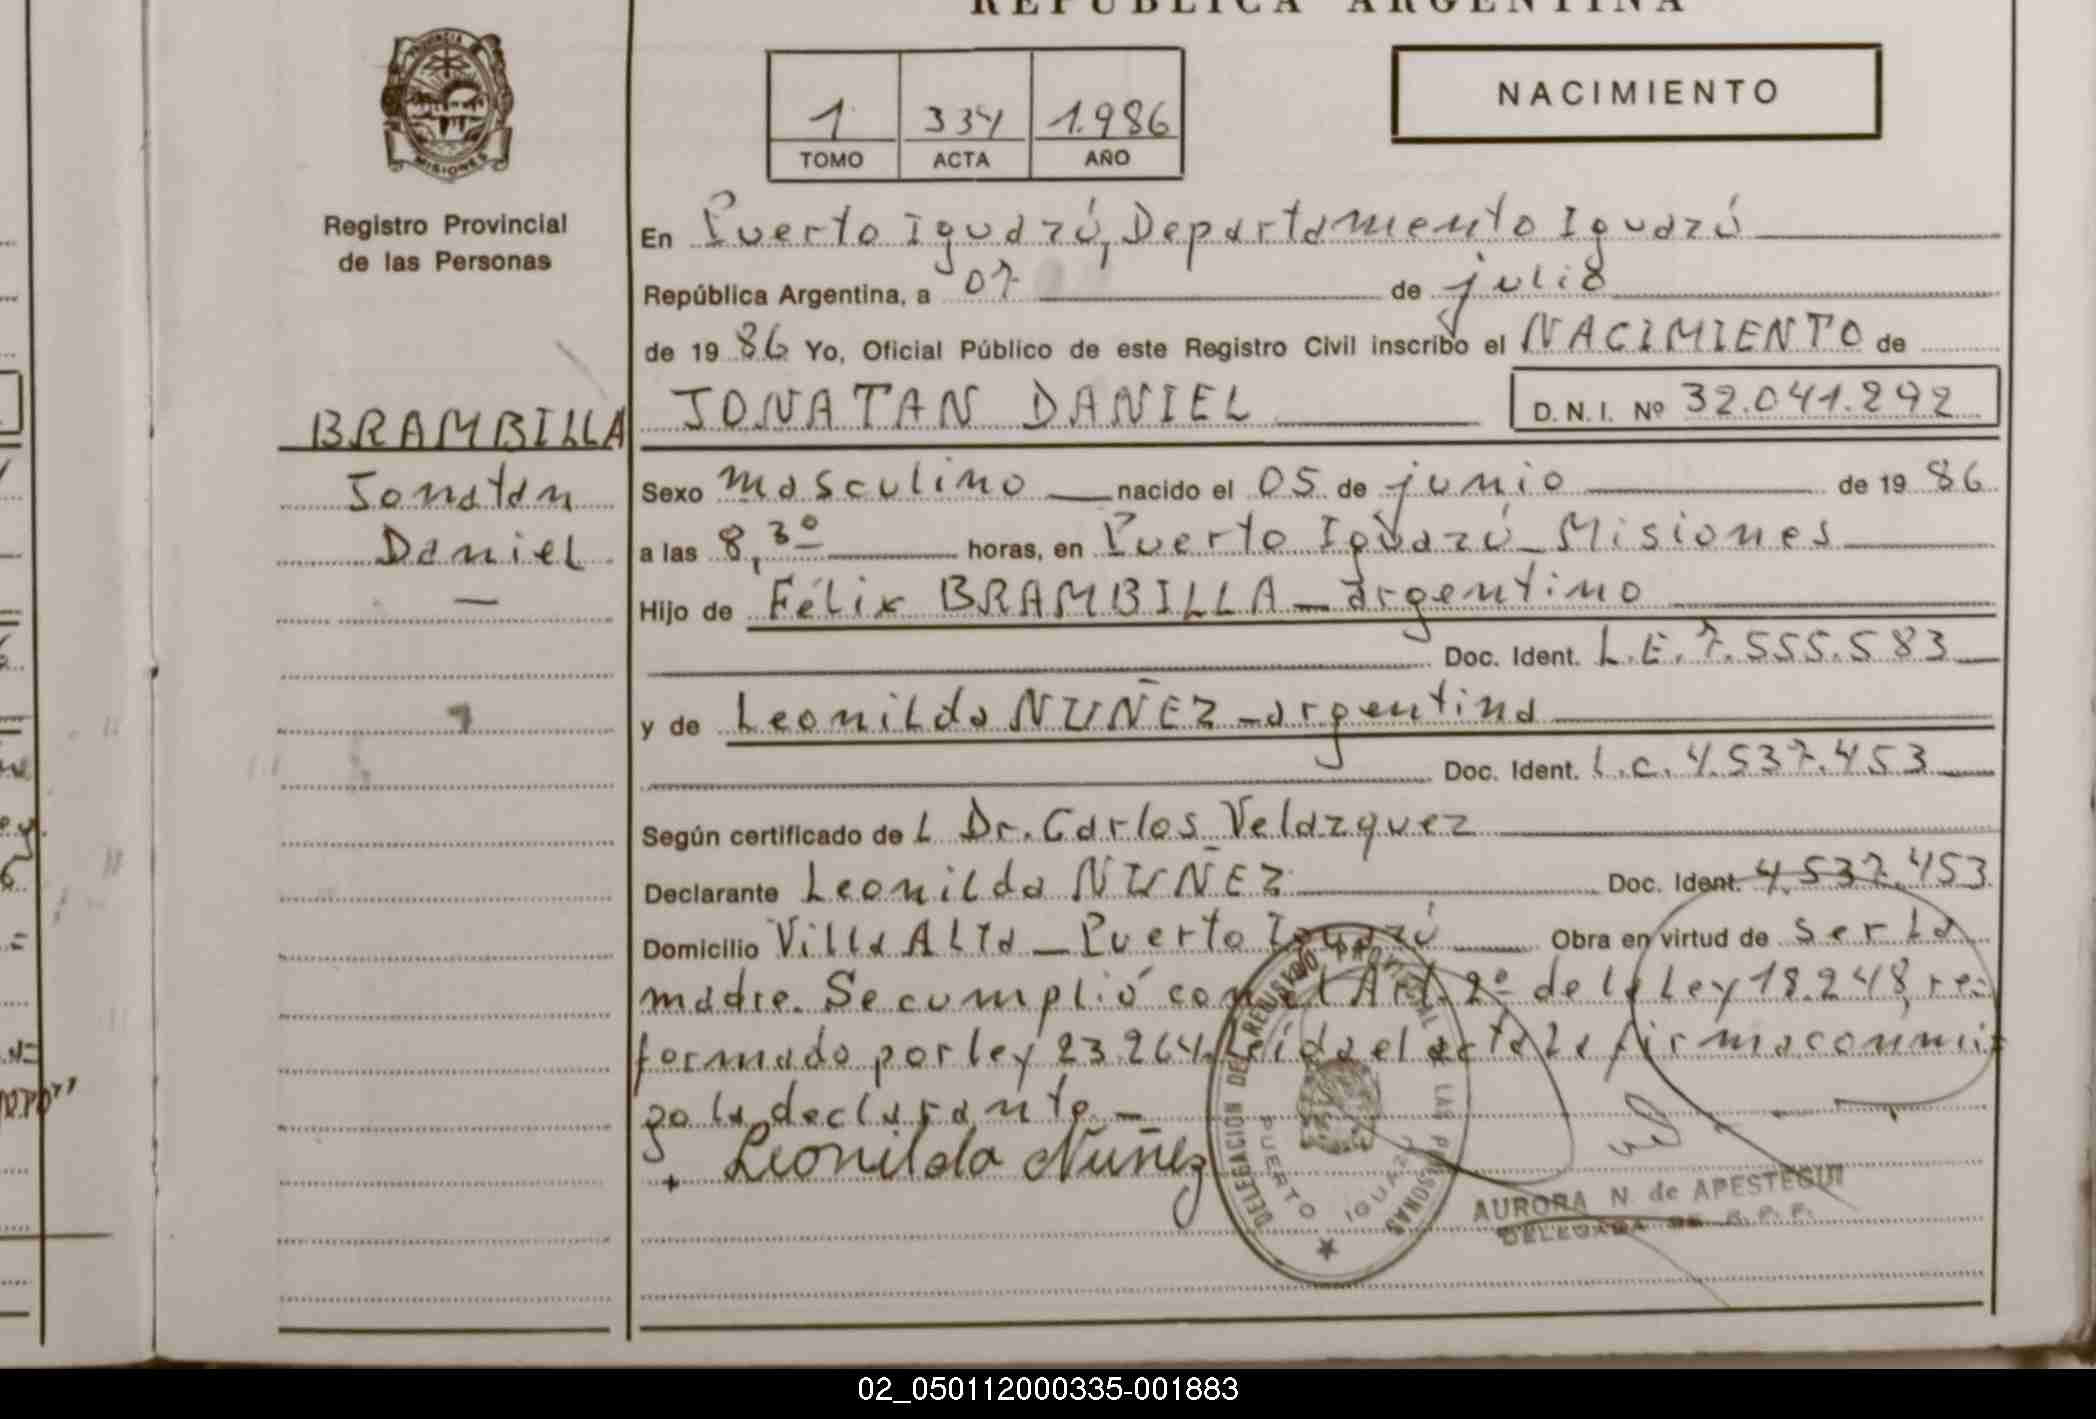 REPUBLICA ARGENTINA
PROVINCIA
MISIONES
Registro Provincial
de las Personas
1 334 1.986
TOMO ACTA AÑO
NACIMIENTO
En Puerto Iguazú, Departamento Iguazú
República Argentina, a 07 de julio
de 19 86 Yo, Oficial Público de este Registro Civil inscribo el NACIMIENTO de
BRAMBILLA
Jonatan
Daniel
JONATAN DANIEL D.N.I. Nº 32.041.292
Sexo masculino nacido el 05 de junio de 19 86
a las 8,3º horas, en Puerto Iguazú - Misiones
Hijo de Félix BRAMBILLA - argentino
Doc. Ident. L.E. 7.555.583
y de Leonilda NUÑEZ - argentina
Doc. Ident. L.C. 4.537.453
Según certificado de L Dr. Carlos Velazquez
Declarante Leonilda NUÑEZ Doc. Ident. 4.537.453
Domicilio Villa Alta - Puerto Iguazú Obra en virtud de ser la
madre. Se cumplió con el Art. 2º de la Ley 18.248, re-
formado por ley 23.264. Leída el acta la firma conmi-
go la declarante -
+ Leonilda Nuñez
DELEGACION DEL REGISTRO PROVINCIAL DE LAS PERSONAS
PUERTO IGUAZU
AURORA N. de APESTEGUI
DELEGADA DE R.P.P.
02_050112000335-001883